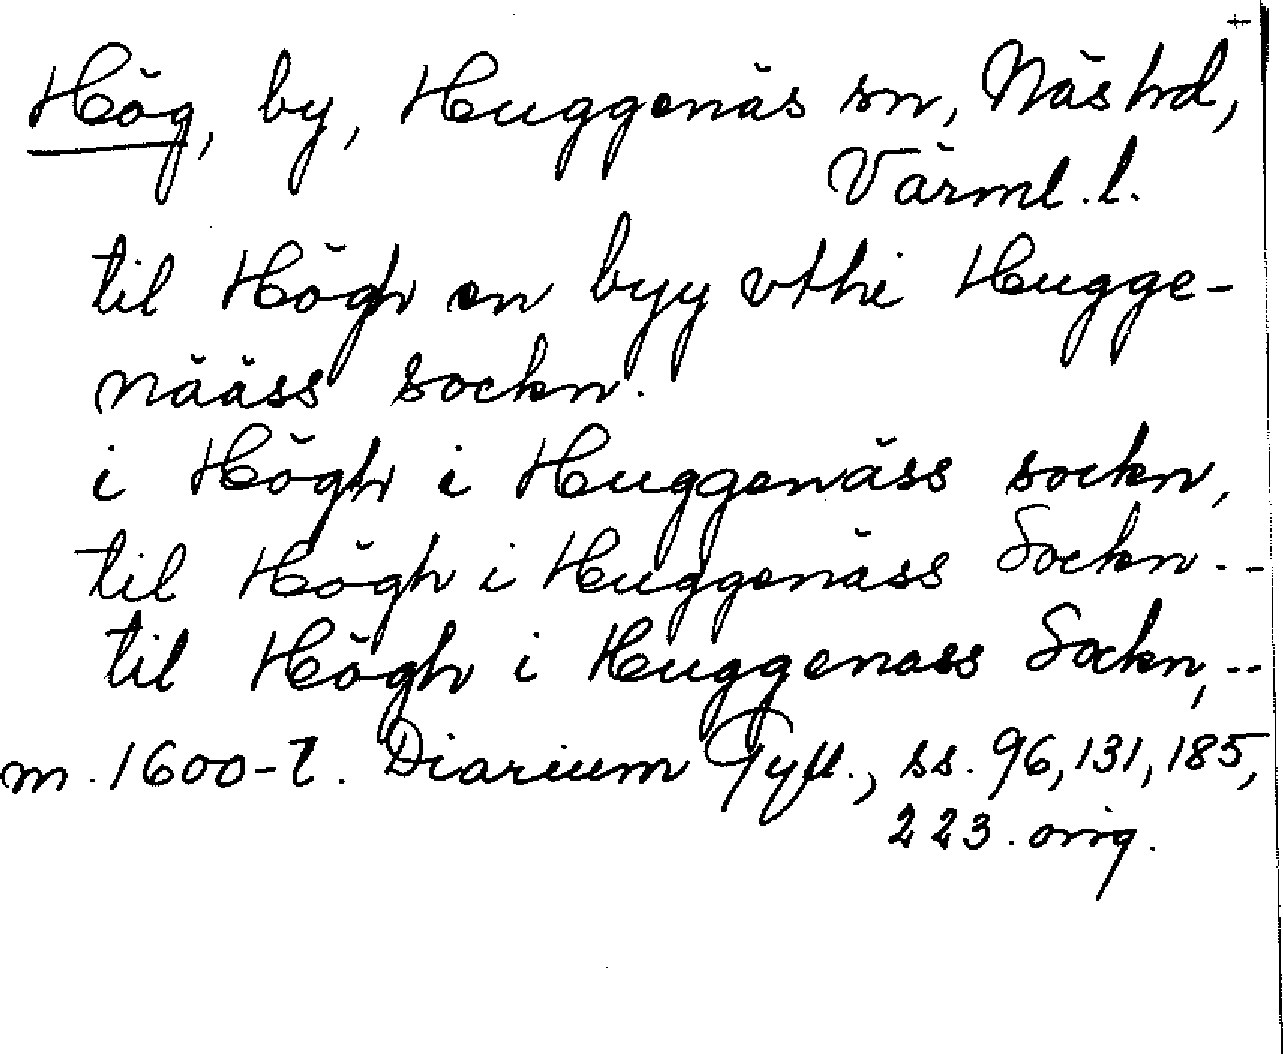 Hög, by, Huggenäs sn, Näs hd,
Värml. l.
til Högh en byy vthi Hugge-
nääss sockn.
i Högh i Huggenäss sockn,
til Högh i Huggenäss Sockn--
til Högh i Huggenass Sockn,--
m. 1600-t. Diarium Gyll., ss. 96, 131, 185,
223. orig.